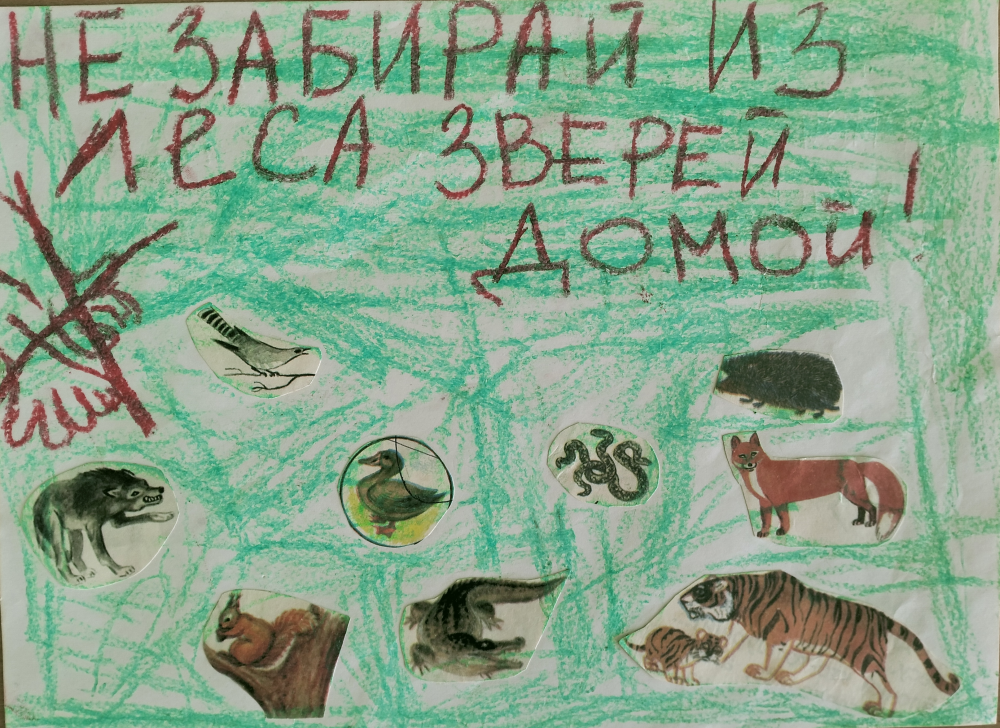 НЕ ЗАБИРАЙ ИЗ
ЛеСА ЗВЕРЕЙ
ДОМОЙ!